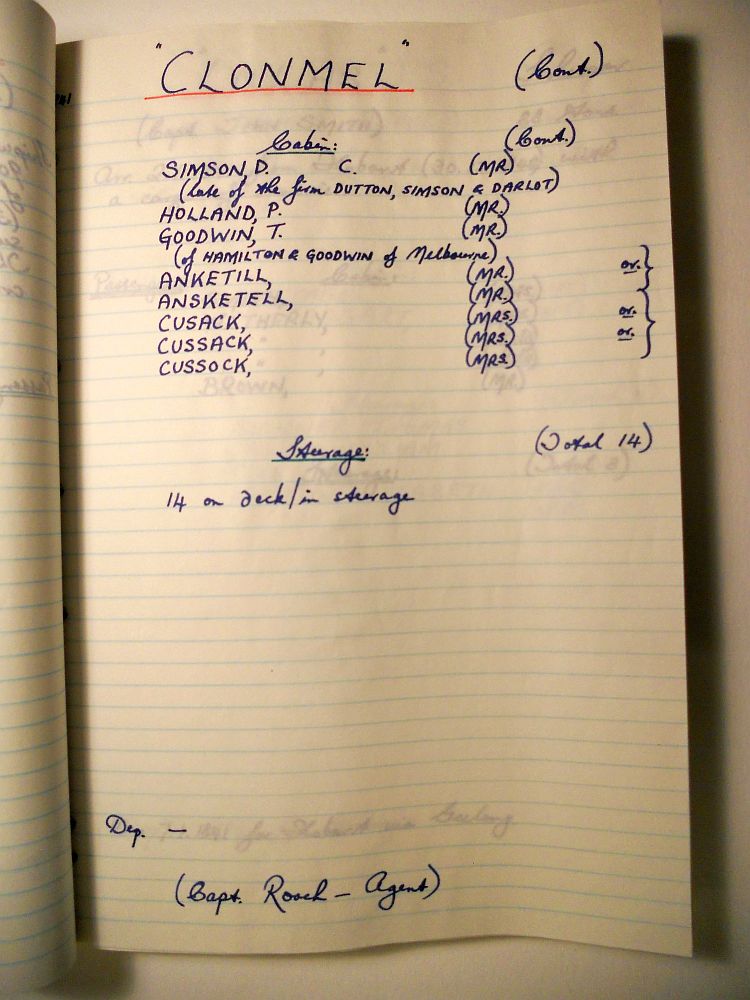 "CLONMEL" (Cont.)
Cabin: (Cont.)
SIMSON, D. C. (MR)
(late of the firm DUTTON, SIMSON & DARLOT)
HOLLAND, P. (MR.)
GOODWIN, T. (MR.)
(of HAMILTON & GOODWIN of Melbourne)
ANKETILL, (MR.) or. }
ANSKETELL, (MR.)
CUSACK, (MRS.) or. }
CUSSACK, (MRS.) or.
CUSSOCK, (MRS.)
Steerage: (Total 14)
14 on deck/in steerage
Dep. —
(Capt. Roach — Agent)